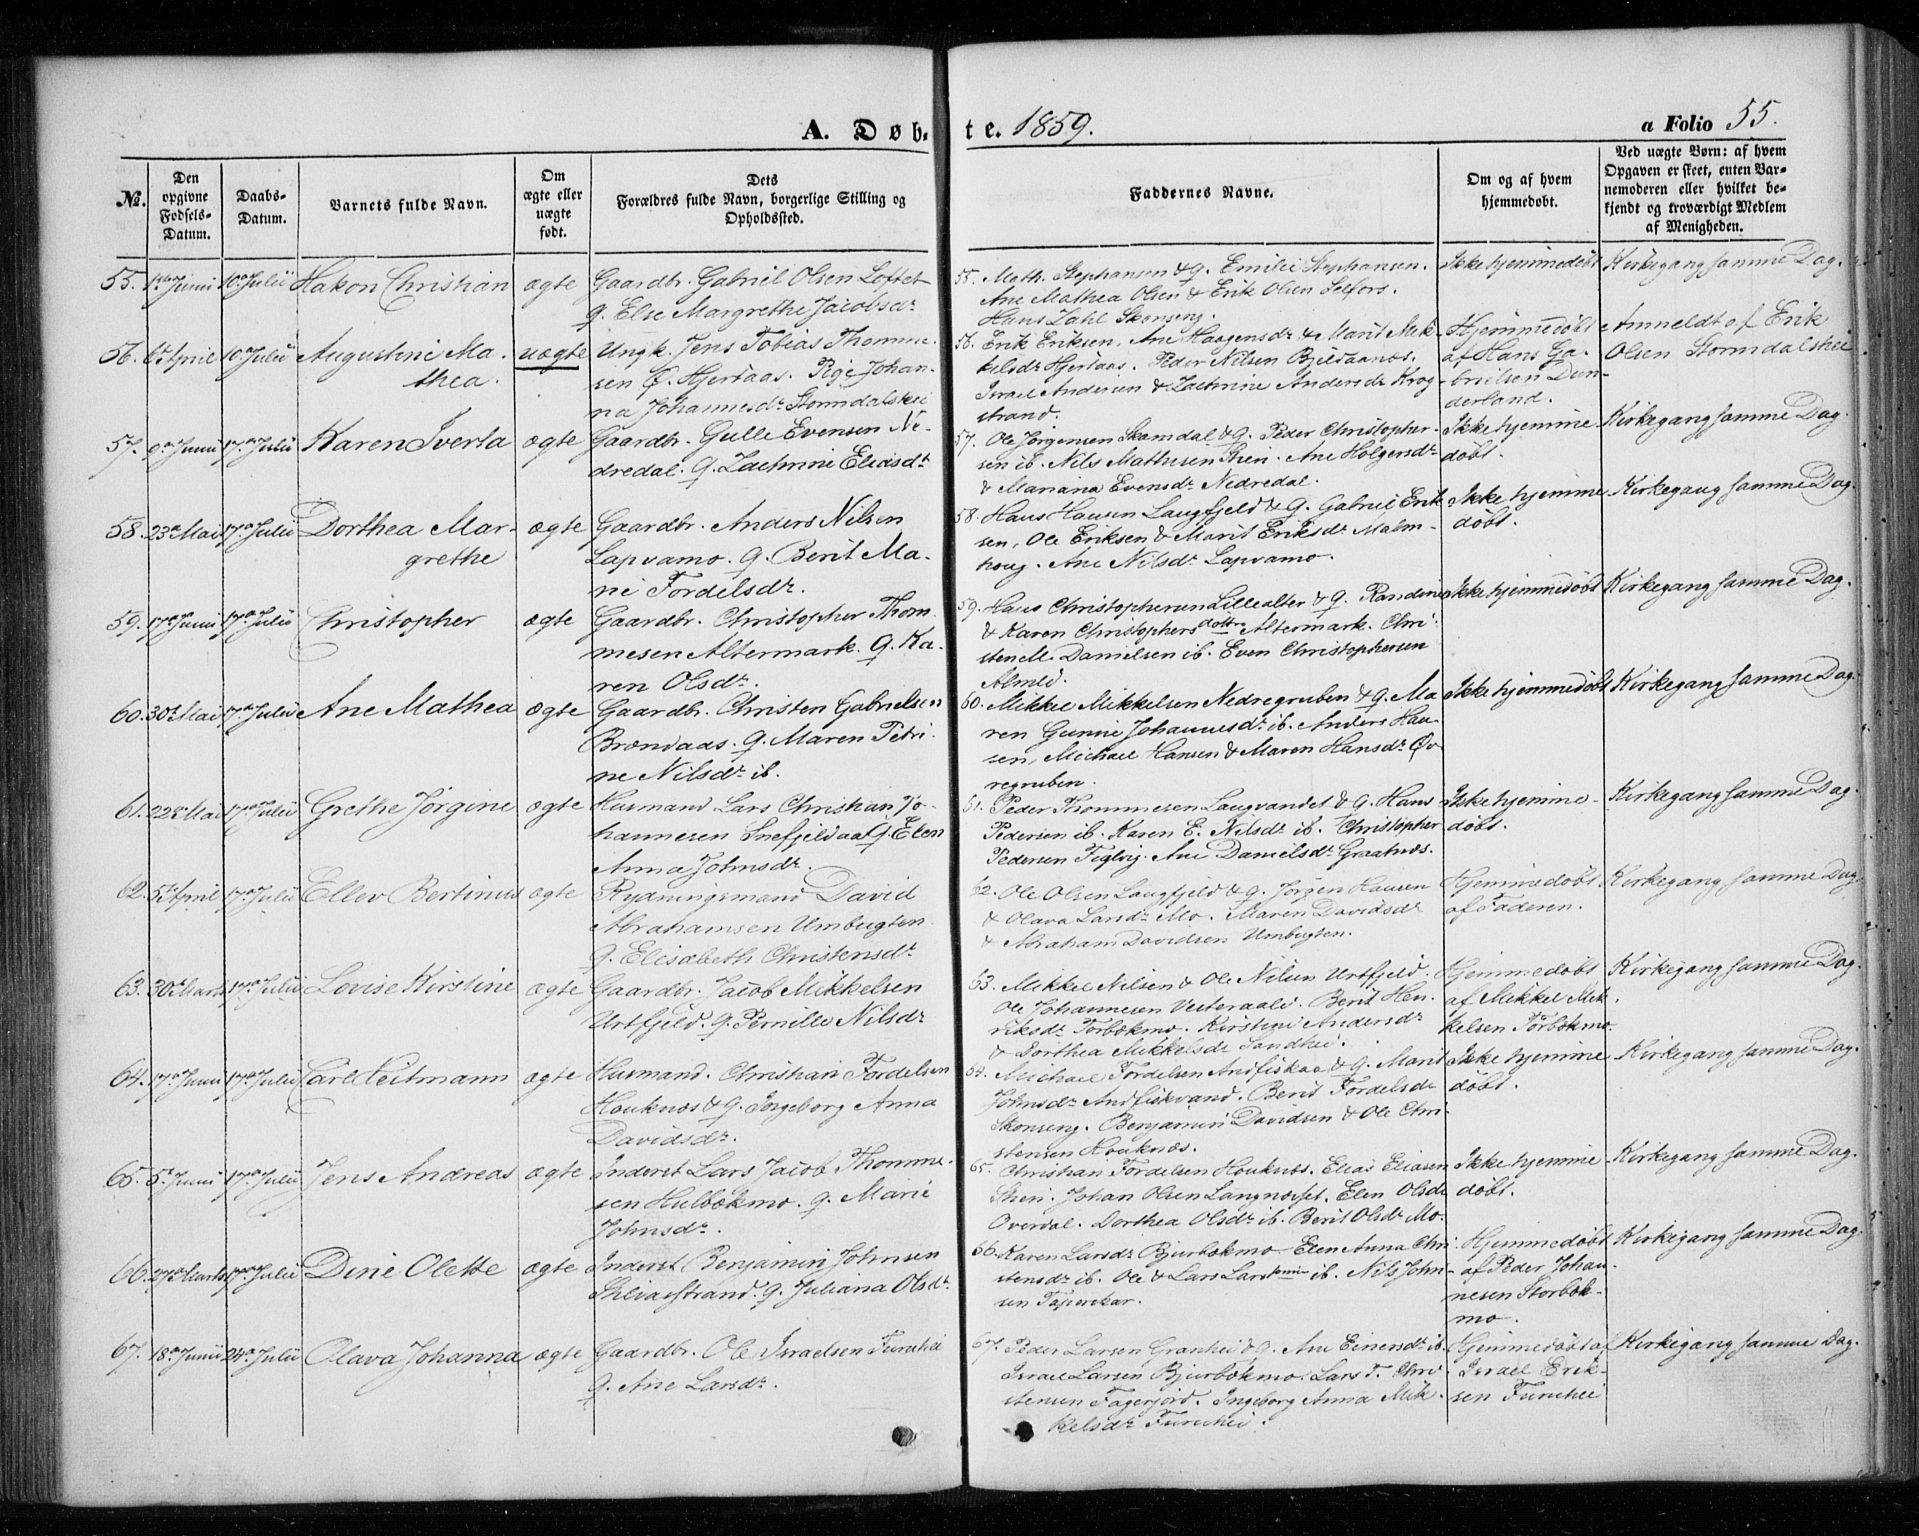 A. Døb-
te. 1859.
a Folio 55.
№.
Den opgivne Fødsels-Datum.
Daabs-Datum.
Barnets fulde Navn.
Om ægte eller uægte født.
Dets Forældres fulde Navn, borgerlige Stilling og Opholdssted.
Faddernes Navne.
Om og af hvem hjemmedøbt.
Ved uægte Børn: af hvem Opgaven er skeet, enten Barnemoderen eller hvilket bekjendt og troværdigt Medlem af Menigheden.
55. 1ste Juni 10de Julii Hakon Christian ægte Gaardbr. Gabriel Olsen Loftet
q. Else Margrethe Jacobsdr.
55. Math. Stephansen & q. Emilie Stephansen.
Ane Mathea Olsen & Erik Olsen Selfors.
Hans Zahl Skonseng.
Ikke hjemmedøbt
Kirkegang samme Dag.
56. 6te April 10 Julii Augustine Ma-
thea.
uægte Ungk. Jens Tobias Thomme-
sen Hjertaas. Pige Johan-
na Johannesdr. Stormdalshei
56. Erik Eriksen, Ane Haagensdr. & Marit Mik-
kelsdr Hjertaas. Peder Nilsen Bjelsaanæs.
Israel Andersen & Zachrine Andersdr Krog-
strand.
Hjemmedøbt
af Hans Ga-
brielsen Dun-
derland.
Anmeldt af Erik
Olsen Stormdalshei
57. 6te Juni 17de Julii Karen Iverta ægte Gaardbr. Gulle Evensen Ne-
dredal. q. Zachrine Eliasdr.
57. Ole Jørgensen Skamdal & q. Peder Christopher-
sen ib. Nils Mathesen Shen. Ane Holgersdr
& Mariana Evensdr. Nedredal.
Ikke hjemme-
døbt.
Kirkegang samme Dag.
58. 23de Mai 17de Julii Dorthea Mar-
grethe
ægte Gaardbr. Anders Nilsen
Lapvamo. q. Berit Ma-
rie Fordelsdr.
58. Hans Hansen Langfjeld & q. Gabriel Erik-
sen, Ole Eriksen & Marit Eriksdr. Malm-
houg. Ane Nilsdr. Lapvamo.
Ikke hjemme
døbt.
Kirkegang samme Dag.
59. 17de Juni 17de Julii Christopher ægte Gaardbr. Christopher Thom-
mesen Altermark. q. Ka-
ren Olsdr.
59. Hans Christophersen Lillealter & q. Randine
& Karen Christophersdøttre Altermark. Chri-
sten M. Danielsen ib. Even Christophersen
Almlid.
Ikke hjemmedøbt
Kirkegang samme Dag.
60. 30te Mai 17de Julii Ane Mathea ægte Gaardbr. Christen Gabrielsen
Brændaas. q. Maren Petri-
ne Nilsdr. ib.
60. Mikkel Mikkelsen Nedregruben & q. Ma-
ren Gunine Johannesdr. ib. Anders Han-
sen, Michael Hansen & Maren Hansdr. Øv-
regruben.
Ikke hjemmedøbt
Kirkegang samme Dag.
61. 22de Mai 17de Julii Grethe Jørgine ægte Husmand Lars Christian Jo-
hannesen Snefjeldaa q. Elen
Anna Johnsdr.
61. Peder Thommesen Langvandet & q. Hans
Pedersen ib. Karen E. Nilsdr. ib. Christopher
Pedersen Teglvig. Ane Danielsdr. Graatnæs.
Ikke hjemme-
døbt.
Kirkegang samme Dag.
62. 5te April 17de Julii Ellev Bertinus ægte Rydningsmand David
Abrahamsen Umbugten
q. Elisabeth Christensdr.
62. Ole Olsen Langfjeld & q. Jørgen Hansen
& Olava Larsdr. Mo. Maren Davidsdr
& Abraham Davidsen Umbugten.
Hjemmedøbt
af Faderen.
Kirkegang samme Dag.
63. 30te Marts 17de Julii Lovise Kirstine ægte Gaardbr. Jacob Mikkelsen
Urtfjeld. q. Pernille Nilsdr.
63. Mikkel Nilsen & Ole Nilsen Urtfjeld.
Ole Johannesen Vesteraali. Berit Hen-
riksdr. Forbækmo. Kirstine Andersdr
& Dorthea Mikkelsdr Sandhei.
Hjemmedøbt
af Mikkel Mik-
kelsen Forbækmo.
Kirkegang samme Dag.
64. 17de Juni 17de Julii Carl Neitmann ægte Husmand. Christian Fordelsen
Houknæs & q. Ingeborg Anna
Davidsdr.
64. Michael Fordelsen Andfiskaa & q. Marit
Johnsdr. Andfiskvand. Berit Fordelsdr
Skonseng. Benjamin Davidsen & Ole Chri-
stensen Houknæs.
Ikke hjemme
døbt.
Kirkegang samme Dag.
65. 5te Juni 17de Julii Jens Andreas ægte Inderst Lars Jacob Thomme-
sen Hulbækmo. q. Marie
Johnsdr.
65. Christian Fordelsen Houknæs. Elias Eliasen
Shen. Johan Olsen Langnæset. Elen Olsdr
Overdal. Dorthea Olsdr. ib. Berit Olsdr. Mo.
Ikke hjemme
døbt.
Kirkegang samme Dag.
66. 27de Marts 17de Julii Dine Olette ægte Inderst Benjamin Johnsen
q. Juliana Olsdr.
66. Karen Larsdr. Bjurbækmo. Elen Anna Chri-
stensdr ib. Ole & Lars Larssønner ib. Nils John-
sen Tapeskar.
Hjemmedøbt
af Peder Johan-
nesen Storbæk-
mo.
Kirkegang samme Dag.
67. 18de Junii 24de Julii Olava Johanna ægte Gaardbr. Ole Israelsen Furuhei
q. Ane Larsdr.
67. Peder Larsen Granhei & q. Ane Einersdr. ib.
Israel Larsen Bjurbækmo. Lars T. Chri-
stensen Fagerjord. Ingeborg Anna Mik-
kelsdr Furuhei.
Hjemmedøbt af
Israel Erik-
sen Furuhei
Kirkegang samme Dag.